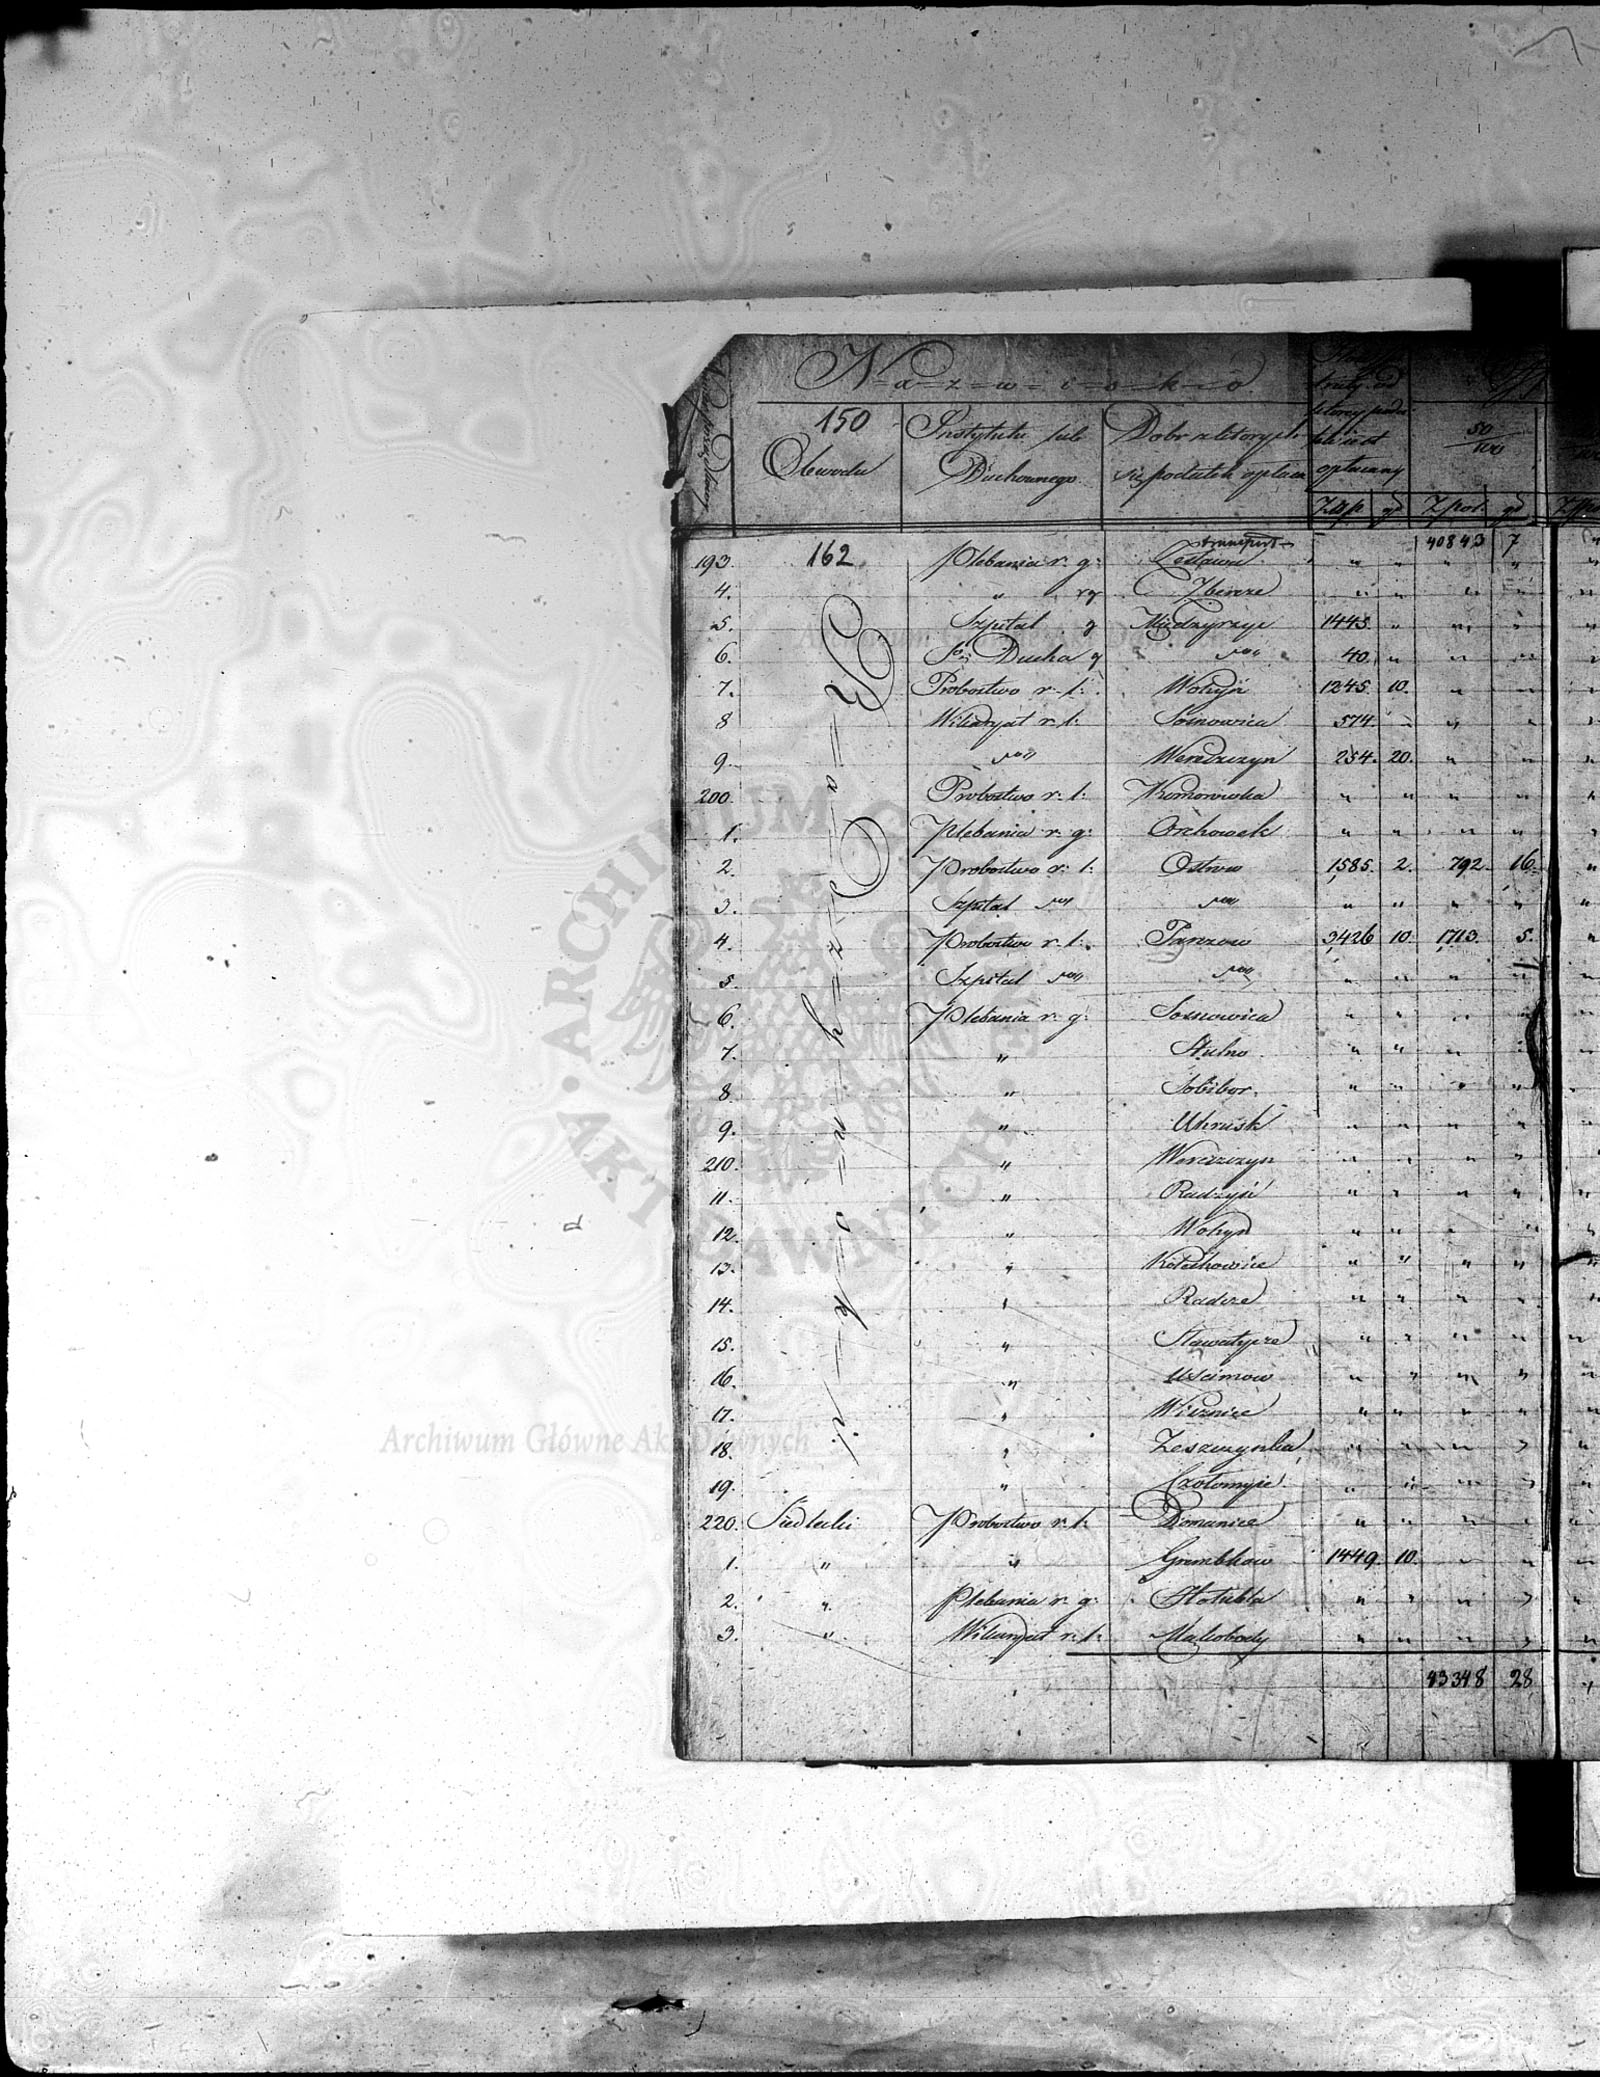 N=a=z=w=i=s=k=o
150
Obwodu
Instytutu lub
Duchownego
Dobr z ktorych
się podatek opłaca
opłacany
50
100
Złp. gr. Z pol. gr
transport 40843 7
193. 162 Plebania r. g:
4. " rg
5. Szpital g Miedzyrzyc 1443. " " "
6. So Ducha g 40. " " "
7. Probostwo r. l: Wohyń 1245. 10. " "
8 Wikaryat r. l: Sosnowica 574. " " "
9. Wereszczyn 254. 20. " "
200. Probostwo r. l: " " " "
1. Plebania r. g: Orchowek " " " "
2. Probostwo r. l: Ostrow 1585. 2. 792. 16.
3. Szpital " " " "
4. Probostwo r. l: Parczow 3426 10. 1713. 5.
5. Szpital " " " "
6. Plebania r. g: Sosnowica " " " "
7. " Stulno " " " "
8. " Sobibor. " " " "
9. " Uhrusk " " " "
210. " Wereszczyn " " " "
11. " Radzyń " " " "
12. " Wohyń " " " "
13. " Kolechowice " " " "
14. " Radcze " " " "
15. " Sławatycze " " " "
16. " Uscimow " " " "
17. " Wisznice " " " "
18. " Żeszczynka " " " "
19. " Czołomyje " " " "
220. Siedlecki Probostwo r. l: Domanice " " " "
1. " " Grembkow 1449. 10. " "
2. " Plebania r. g: Hołubla " " " "
3. " Wikaryat r. l: Mokobody " " " "
43348 28
ARCHIWUM GŁÓWNE AKT DAWNYCH
Archiwum Główne Akt Dawnych